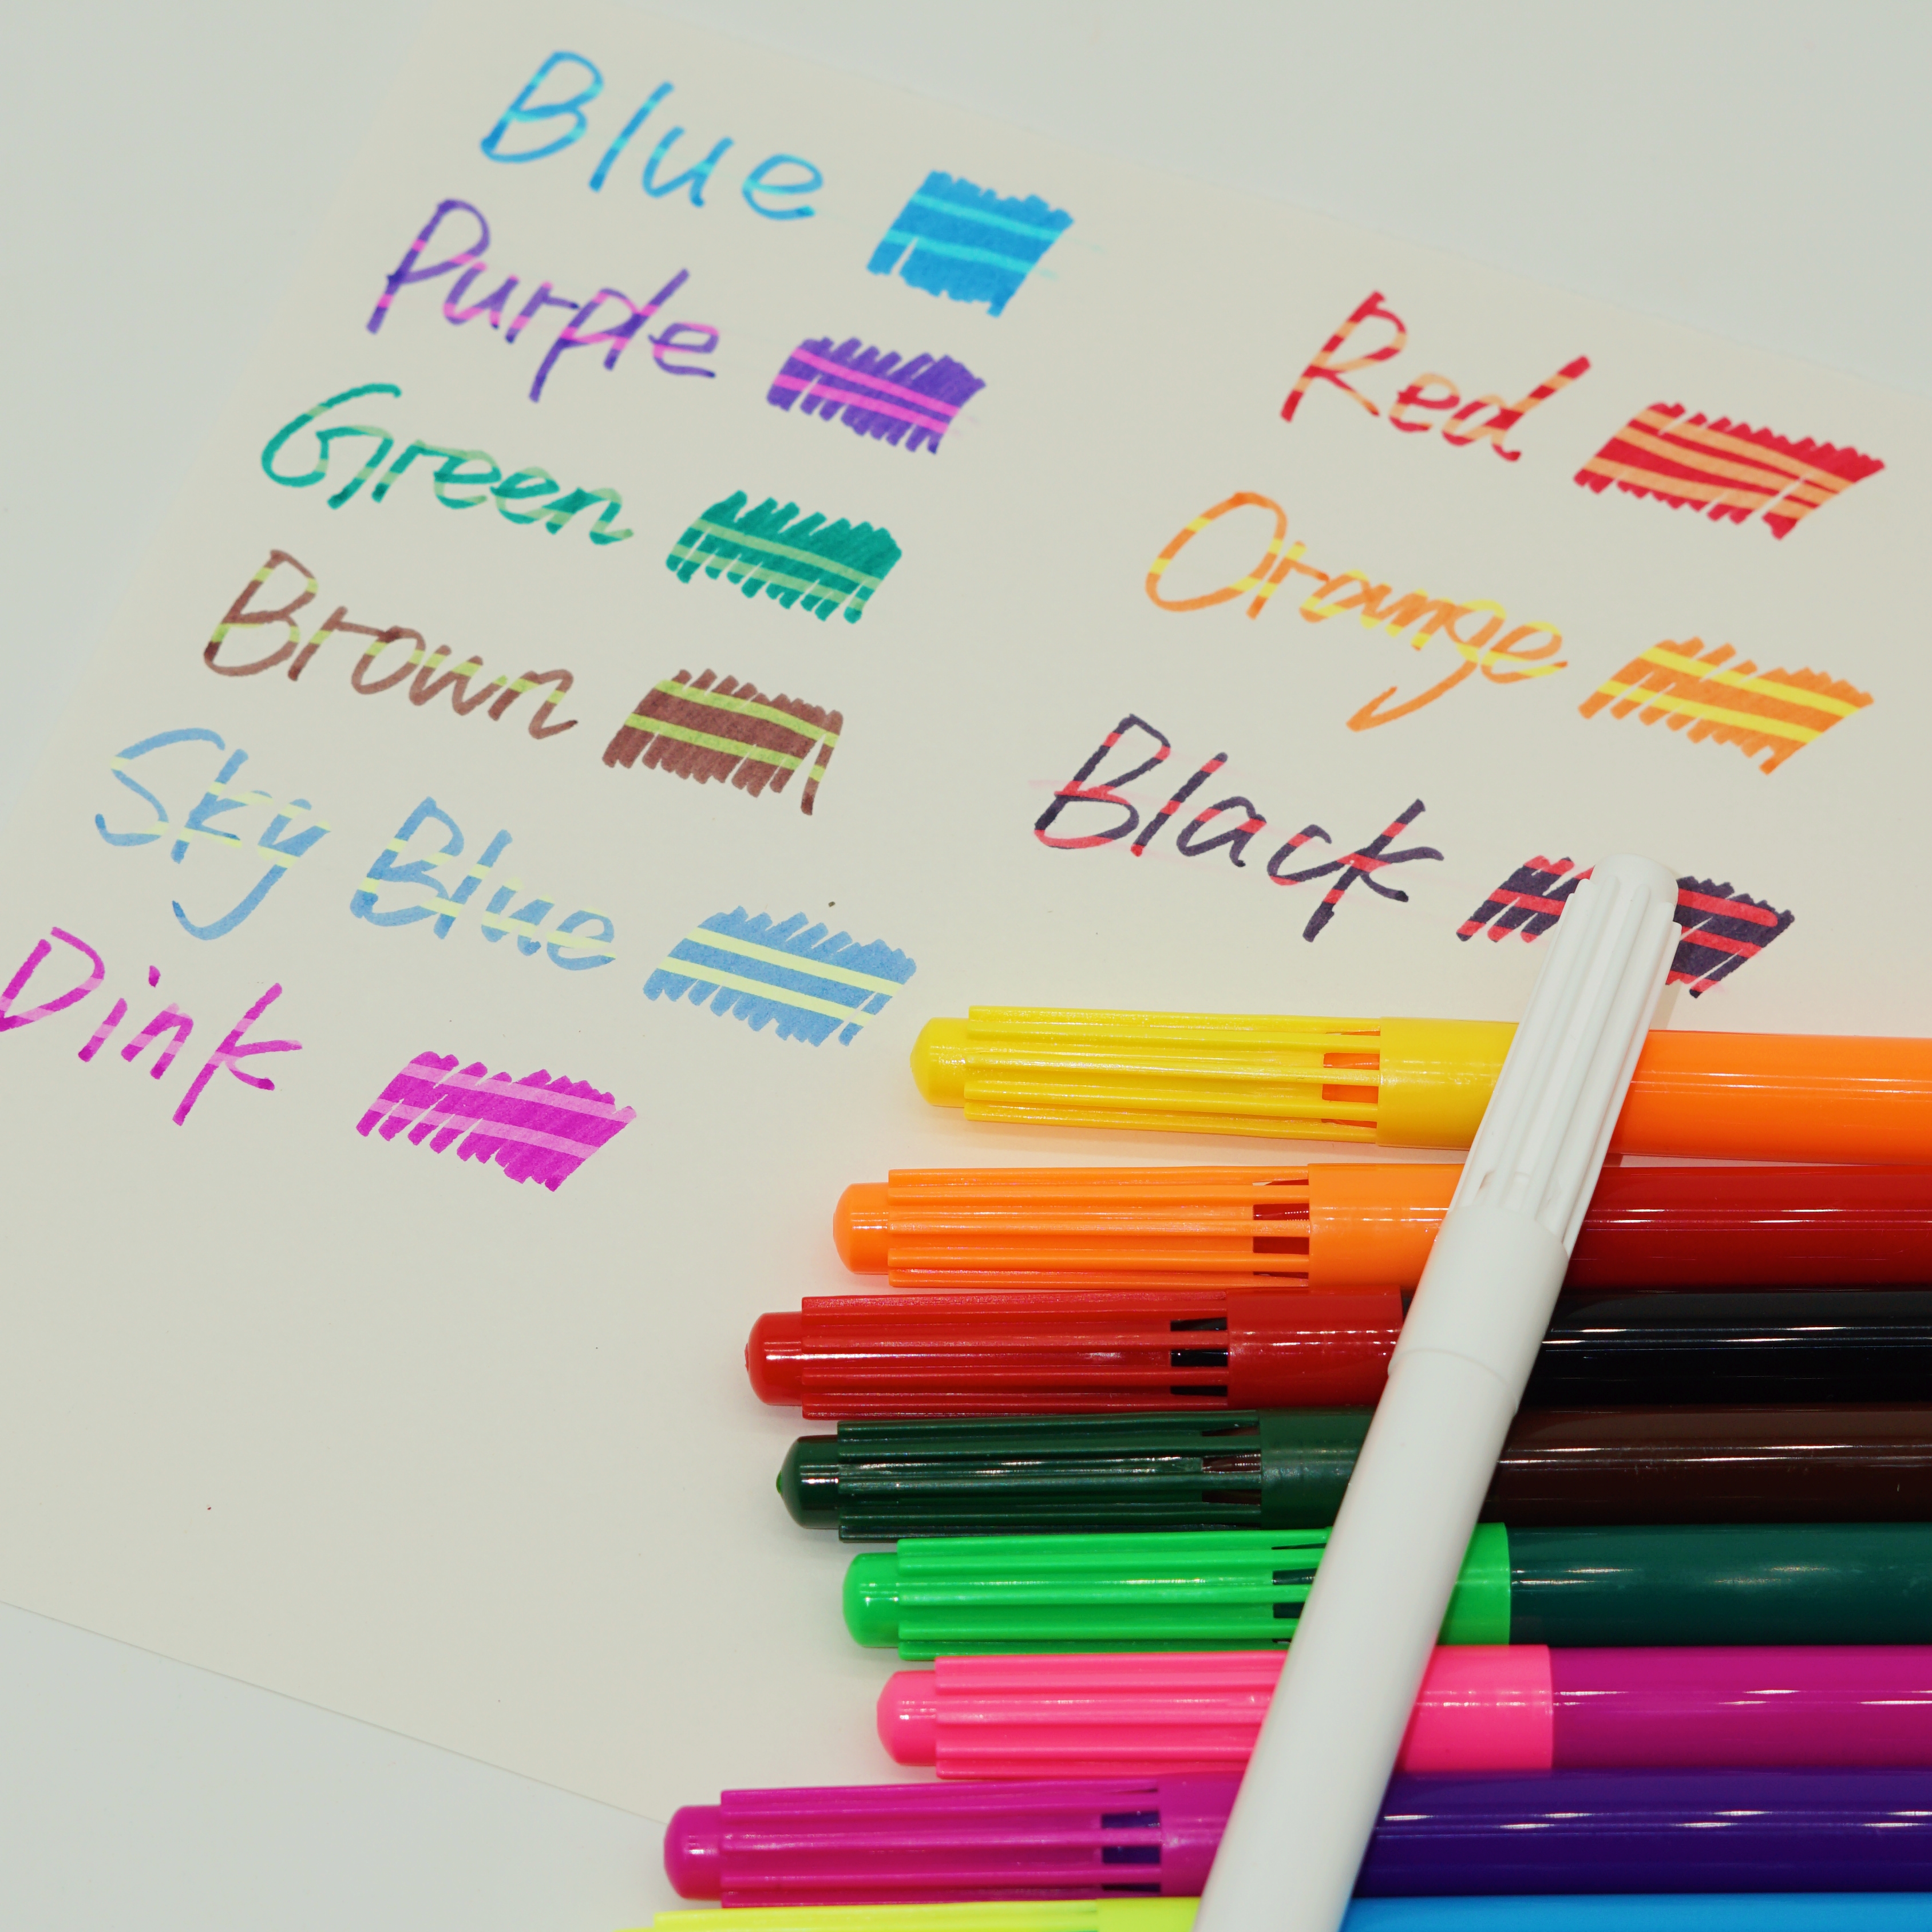 Blue
Purple
Green
Brown
Sky Blue
Dink
Red
Orange
Black